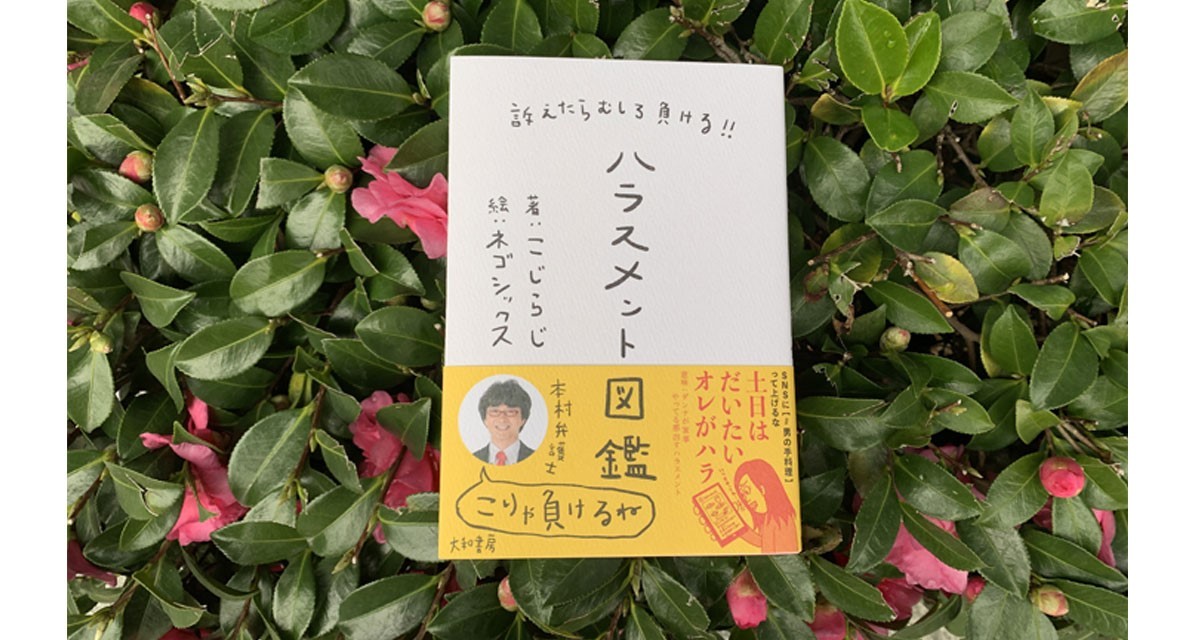 訴えたらむしろ負ける!!
ハラスメント図鑑
著:こじらじ
絵:ネゴシックス
本村弁護士
こりゃ負けるね
大和書房
って上げるな
土日は
だいたい
オレがハラ